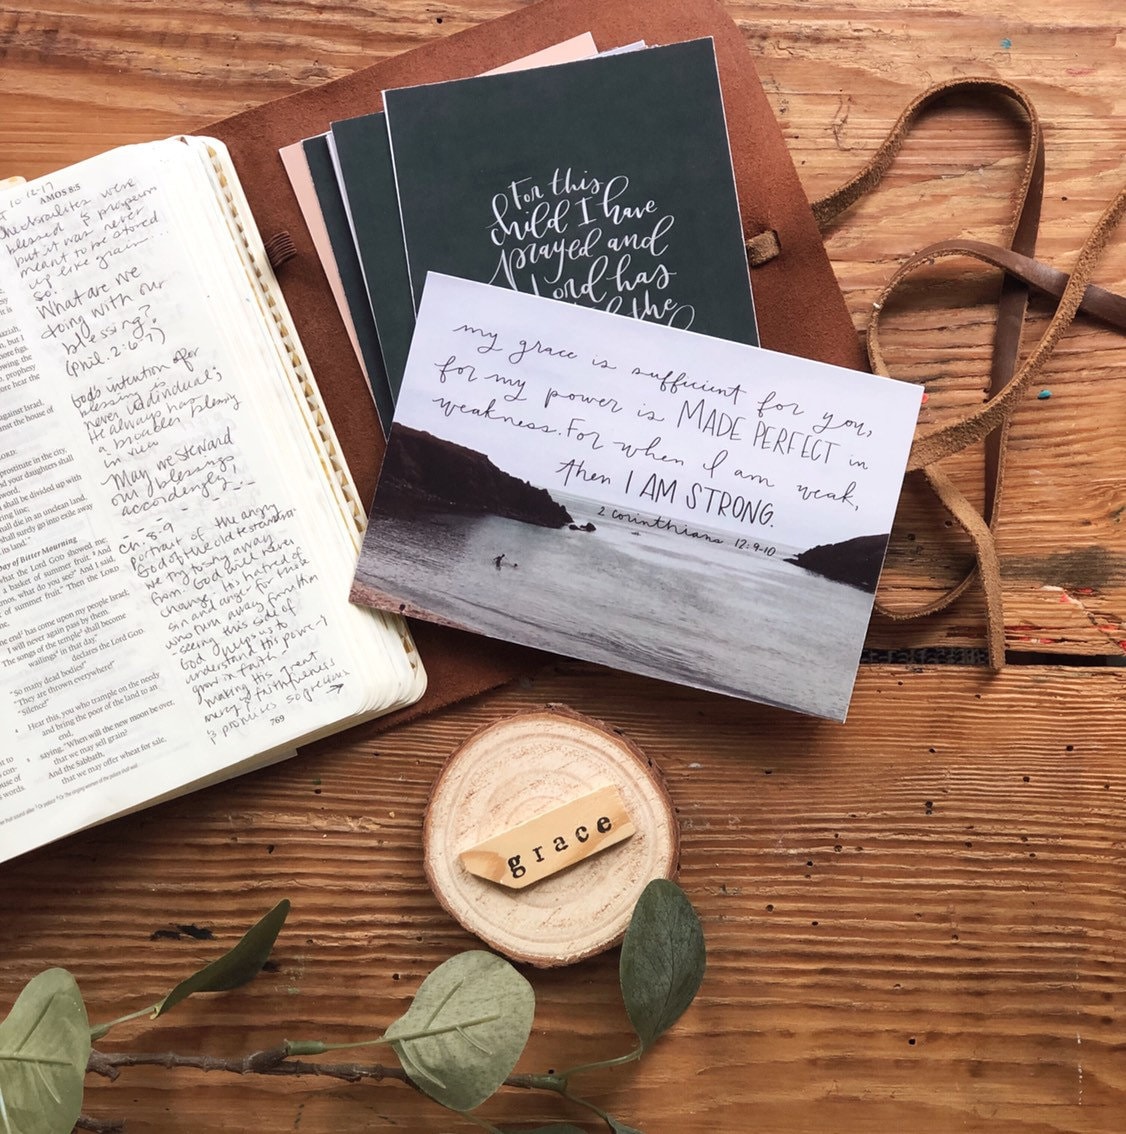 10-12-17
AMOS 8:5
the Israelites were
blessed & prosperous
but it was never
meant to be stored
up like grain.
So:
What are we
doing with our
blessing?
(Phil. 2:6-7)
God's intention for
blessing is
never individual;
He always has
a broader blessing
in view
May we steward
our blessings
accordingly!
Ch. 8-9
Portrait of the angry
God of the old testament
we try to shy away
from. God will never
change, his hatred of
sin and anger for those
who run away from him
seeing this side of
God helps us to
understand His power &
grow in faith
making His great
mercy & faithfulness
& promises so precious
769
against Israel,
inst the house of
prostitute in the city,
and your daughters shall
sword,
shall be divided up with
ing line;
shall die in an unclean land,
shall surely go into exile away
its land."
Day of Bitter Mourning
what the Lord GOD showed me:
a basket of summer fruit. And
os, what do you see?" And I said,
et of summer fruit." Then the LORD
end has come upon my people Israel;
I will never again pass by them.
The songs of the temple shall become
wailings in that day,"
declares the Lord GOD.
"So many dead bodies!"
"They are thrown everywhere!"
"Silence!"
Hear this, you who trample on the needy
and bring the poor of the land to an
end,
saying, "When will the new moon be over,
that we may sell grain?
And the Sabbath,
that we may offer wheat for sale,
For this
child I have
prayed and
Lord has
the
my grace is sufficient for you,
for my power is MADE PERFECT in
weakness. For when I am weak,
then I AM STRONG.
2 Corinthians 12:9-10
grace